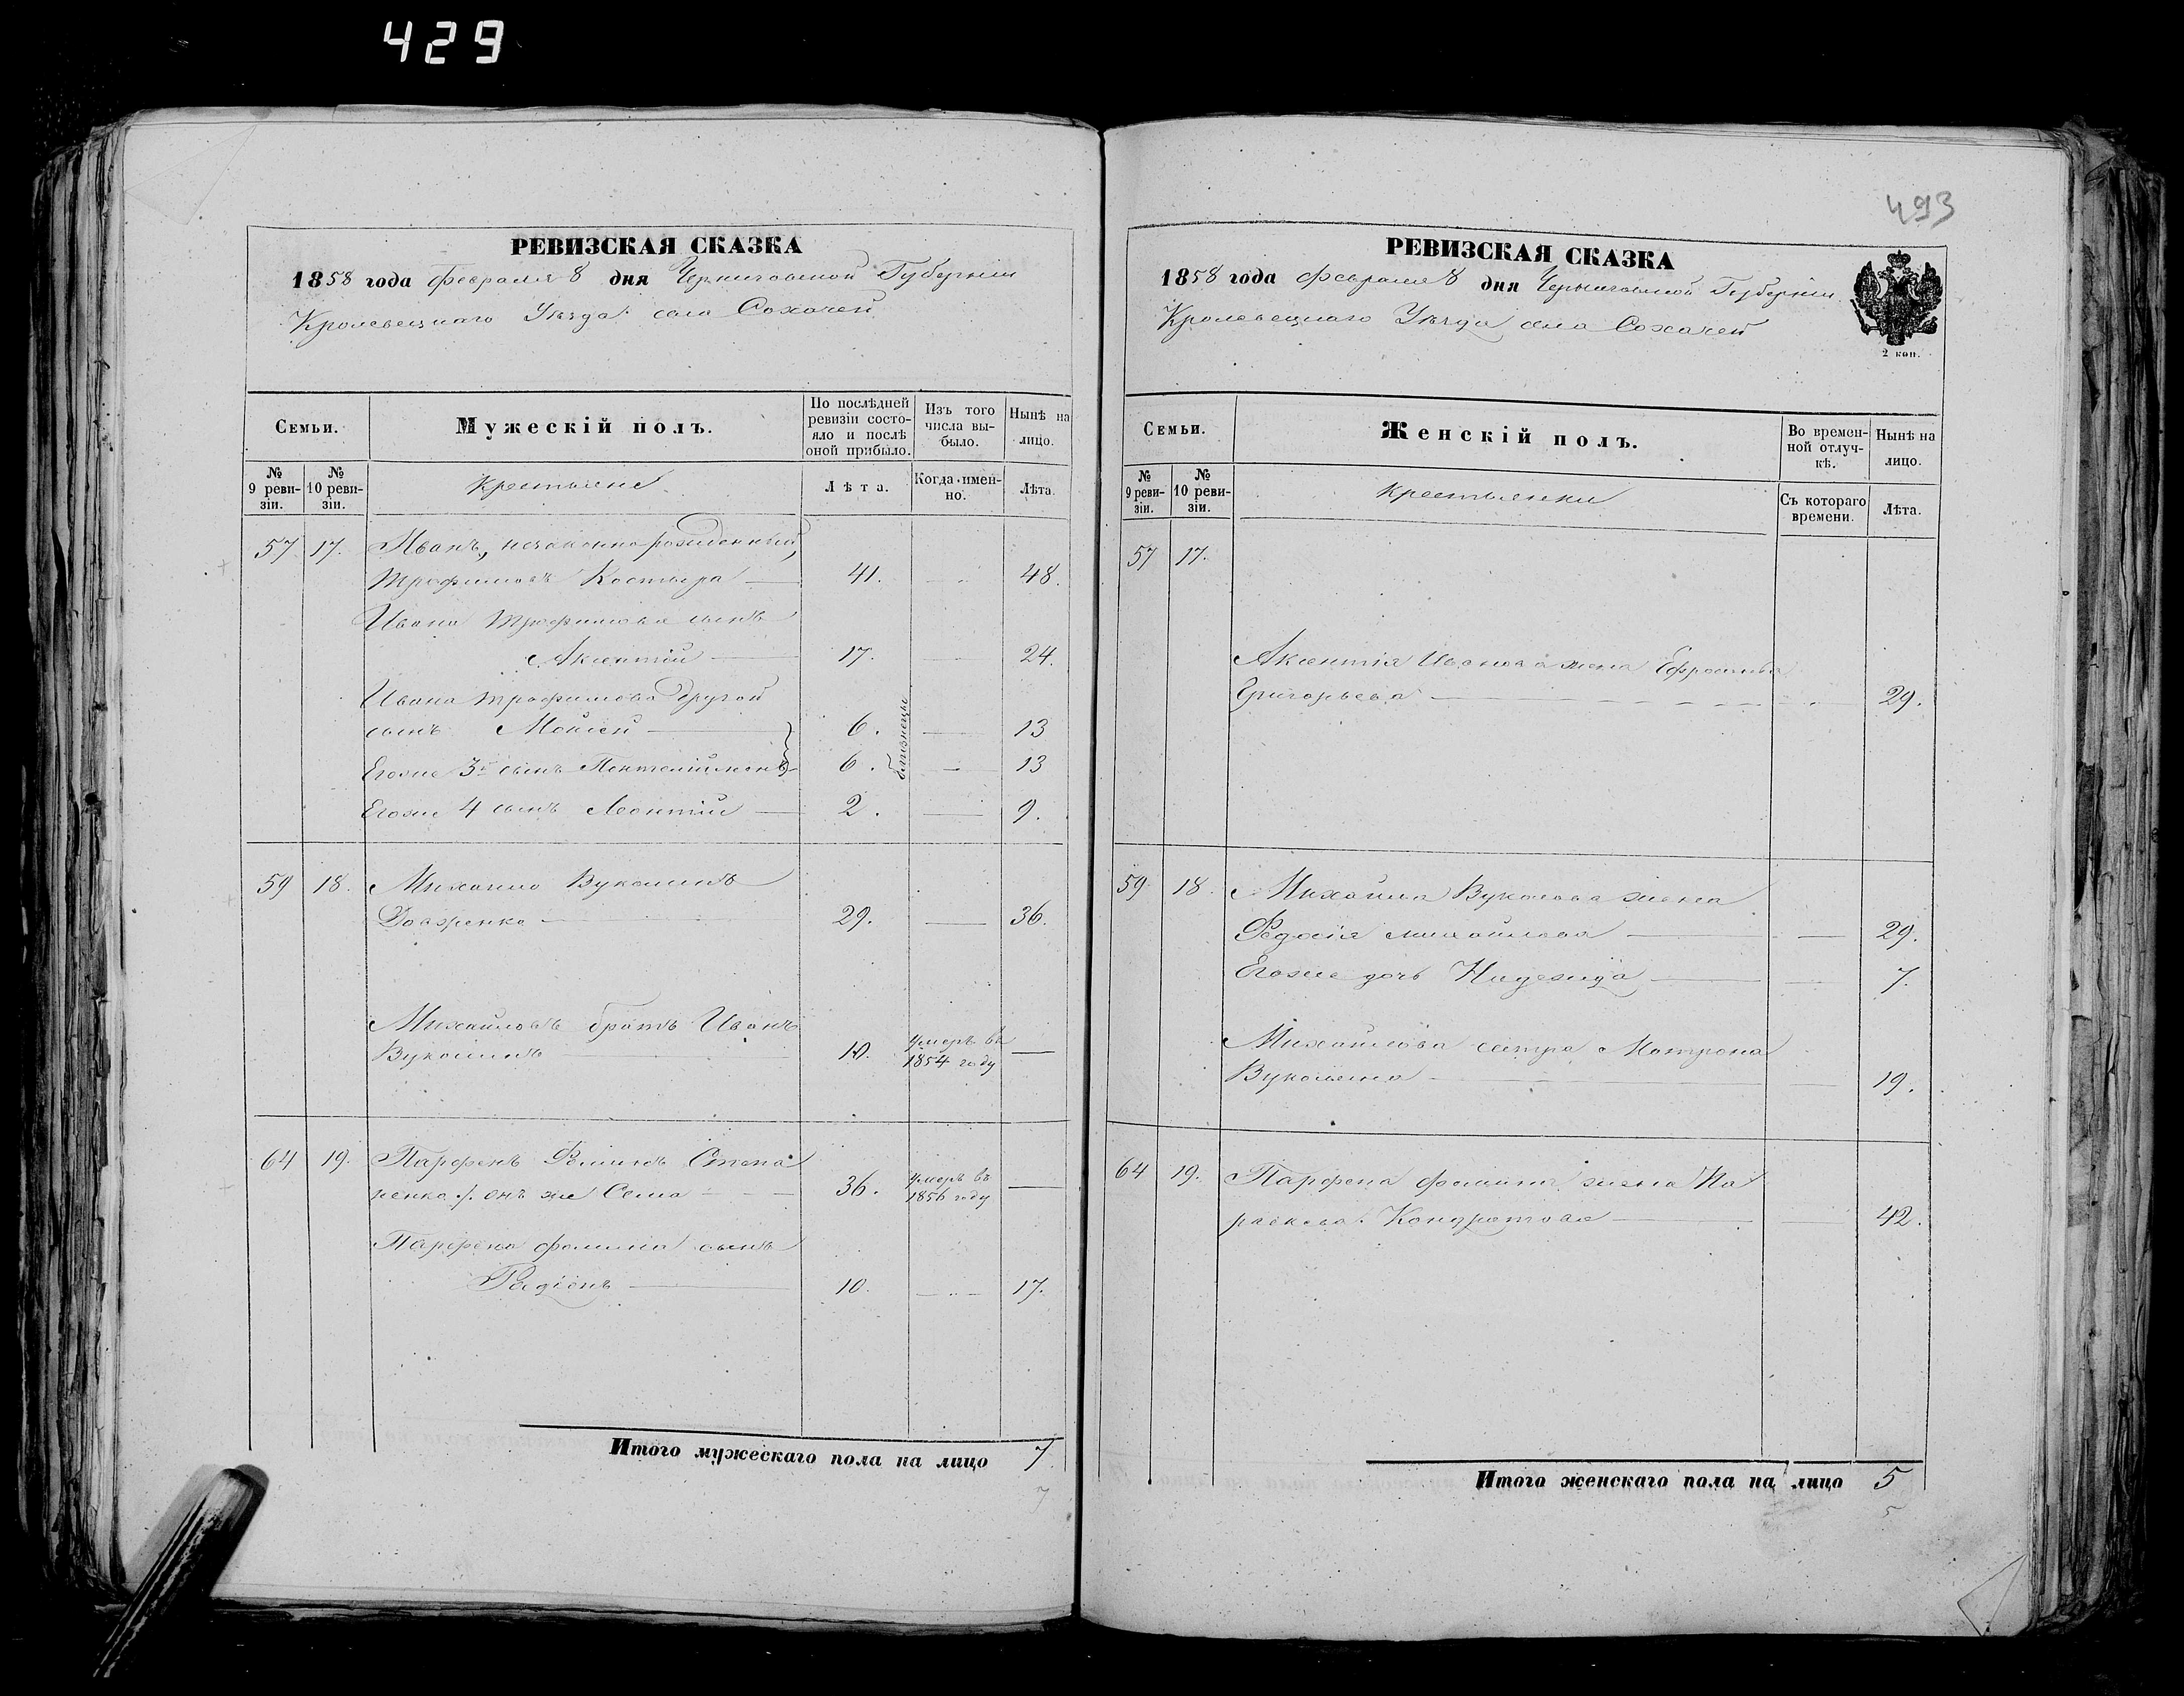 429
РЕВИЗСКАЯ СКАЗКА
1858 года февраля 8 дня Черниговской Губерніи
Кролевецкаго Уѣзда села Сохачей
Семьи.
Мужескій полъ.
По послѣдней ревизіи состояло и послѣ оной прибыло.
Изъ того числа выбыло.
Нынѣ на лицо.
№ 9 ревизіи.
№ 10 ревизіи.
Крестьяне
Лѣта.
Когда именно.
Лѣта.
57 17. Иванъ, незаконнорожденный,
Трофимовъ Костыра 41. 48.
Ивана Трофимова сынъ
Аксентій 17. 24.
Ивана Трофимова другой
сынъ Мойсей 6. 13
Егоже 3й сынъ Пантелiймонъ 6. близнецы 13
Егоже 4 сынъ Леонтій 2. 9.
59 18. Михайло Вуколинъ
Довженко 29. 36.
Михайловъ братъ Иванъ
Вуколинъ 10. умеръ въ 1854 году
64 19. Парфенъ Фоминъ Степа
ненко /. онъ же Сема 36. умеръ въ 1856 году
Парфена Фомина сынъ
Радіонъ 10. 17.
Итого мужескаго пола на лицо 7
7
493
РЕВИЗСКАЯ СКАЗКА
1858 года февраля 8 дня Черниговской Губерніи
Кролевецкаго Уѣзда села Сохачей
2 коп.
Семьи.
Женскій полъ.
Во временной отлучкѣ.
Нынѣ на лицо.
№ 9 ревизіи.
№ 10 ревизіи.
Крестьянки
Съ котораго времени.
Лѣта.
57 17.
Аксентія Иванова жена Ефросинья
Григорьева 29.
59 18. Михайла Вуколова жена
Федосія Михайлова 29.
Егоже дочь Надежда 7.
Михайлова сестра Мотрона
Вуколина 19.
64 19. Парфена Фомина жена Па
раскева Кондратова 42.
Итого женскаго пола на лицо 5
5